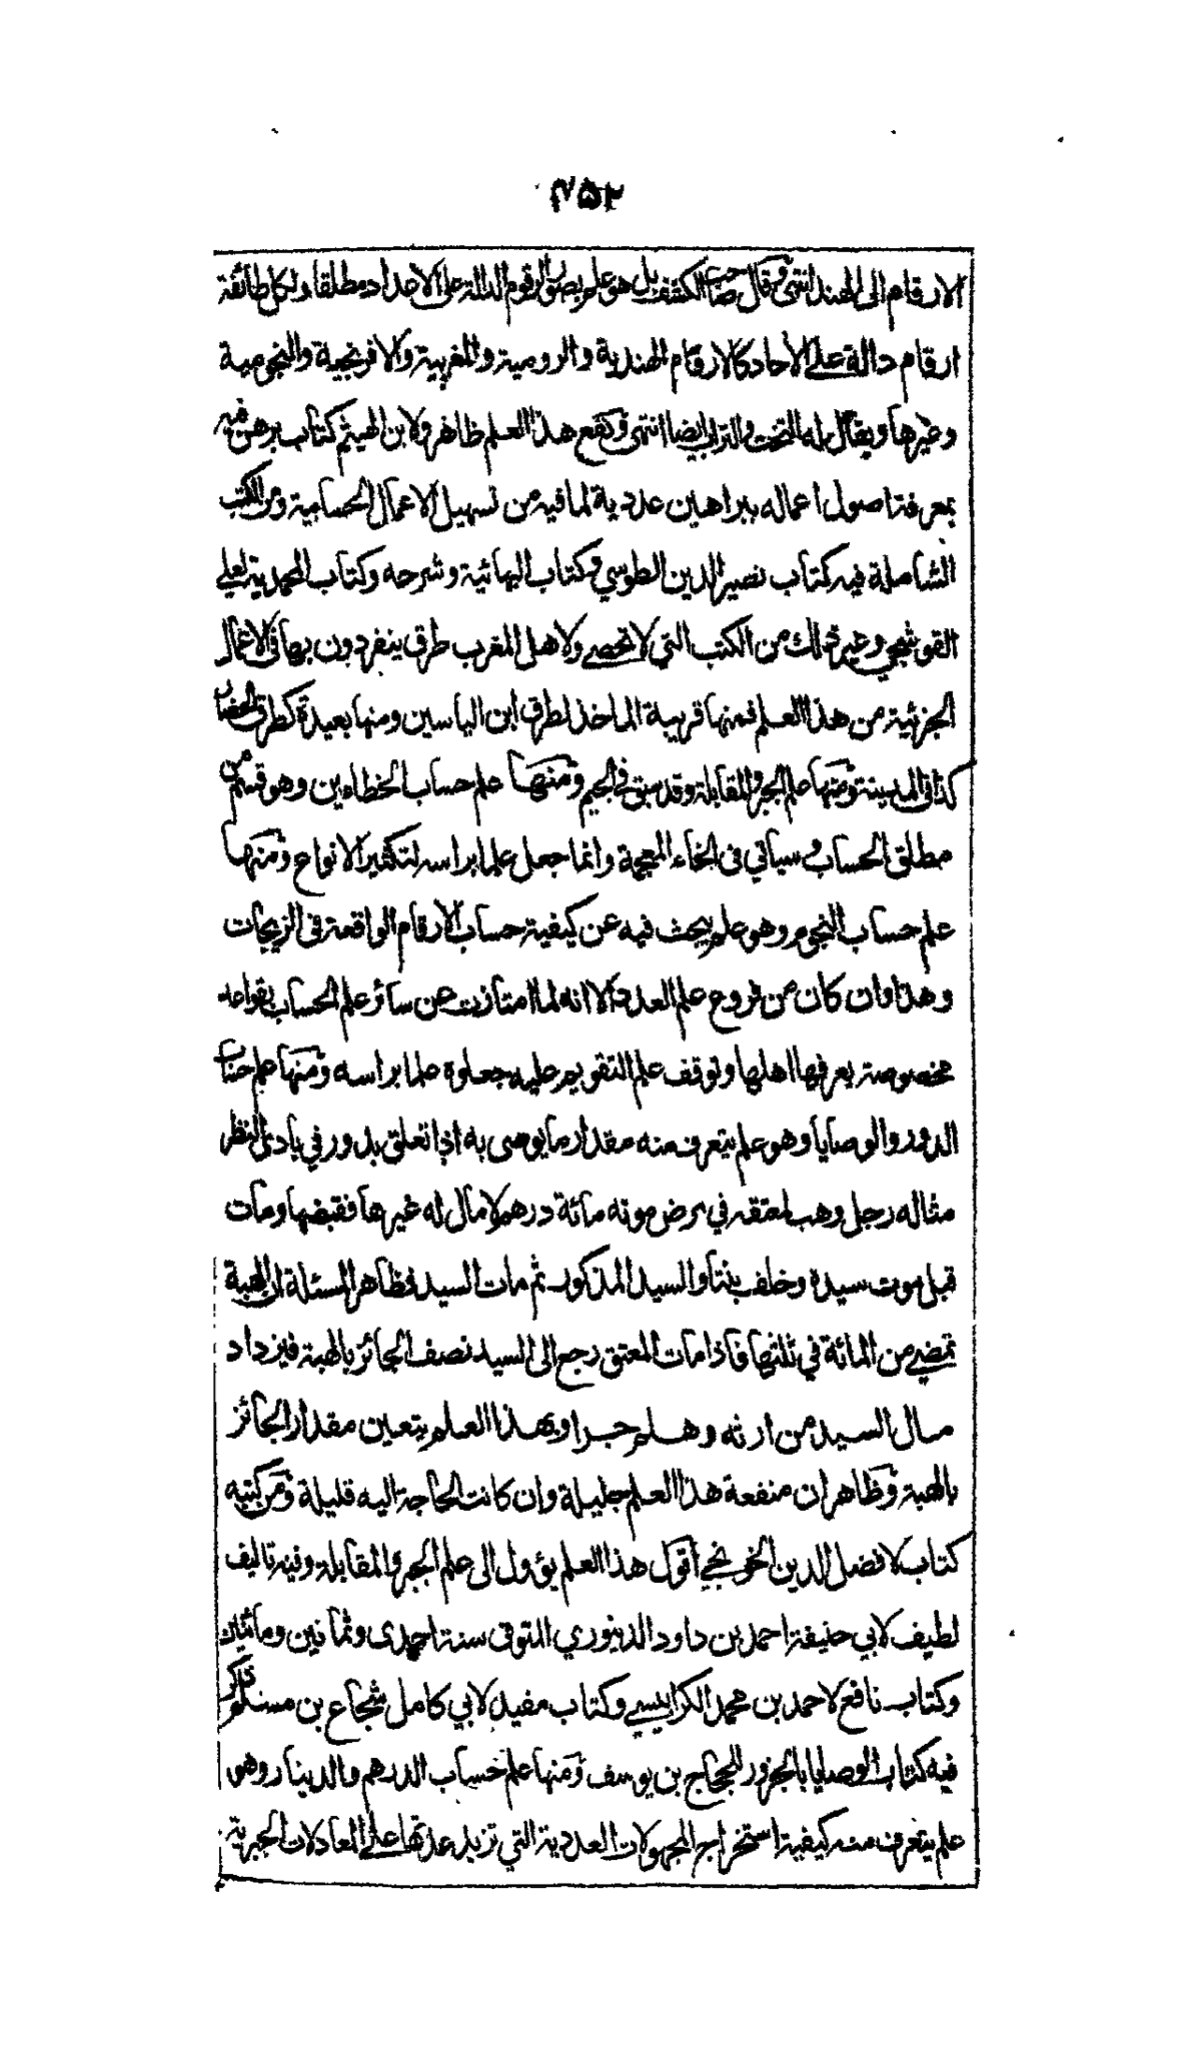 ۴۵۲
الارقام الى الهند انتهى وقال صاحب الكشف بل هو علم بصور الرقوم الدالة على الاعداد مطلقا ولكل طائفة
ارقام دالة على الآحاد كالارقام الهندية والرومية والمغربية والافرنجية والنجومية
وغيرها ويقال له التخت والتراب ايضا انتهى ونفع هذا العلم ظاهر ولابن الهيثم كتاب برهن فيه
بمعرفة اصول اعماله ببراهين عددية لما فيه من تسهيل الاعمال الحسابية ومن الكتب
الشاملة فيه كتاب نصير الدين الطوسي وكتاب البهائية وشرحه وكتاب المحمدية لعلي
القوشجي وغير ذلك من الكتب التي لا تحصى ولاهل المغرب طرق ينفردون بها في الاعمال
الجزئية من هذا العلم فمنها قريبة الماخذ لطرق ابن الياسين ومنها بعيدة كطرق الحصار
كذا في المدينة ومنها علم الجبر والمقابلة وقد سبق في الجيم ومنها علم حساب الخطاءين وهو قسم من
مطلق الحساب وسياتي في الخاء المعجمة وانما جعل علما براسه لتكثير الانواع ومنها
علم حساب النجوم وهو علم يبحث فيه عن كيفية حساب الارقام الواقعة في الزيجات
وهذا وان كان من فروع علم العدد الا انه لما امتازت عن سائر علم الحساب بقواعد
مخصوصة يعرفها اهلها وتوقف علم التقويم عليه جعلوه علما براسه ومنها علم حساب
الدور والوصايا وهو علم يتعرف منه مقدار ما يوصى به اذا تعلق بدور في بادي النظر
مثاله رجل وهب لمعتقه في مرض موته مائة درهم لا مال له غيرها فقبضها ومات
قبل موت سيده وخلف بنتا والسيد المذكور ثم مات السيد فظاهر المسئلة ان الهبة
تمضي من المائة في ثلثها فاذا مات المعتق رجع الى السيد نصف الجائز بالهبة فيزداد
مال السيد من ارثه وهلم جرا وبهذا العلم يتعين مقدار الجائز
بالهبة وظاهر ان منفعة هذا العلم جليلة وان كانت الحاجة اليه قليلة ومن كتبه
كتاب لافضل الدين الخونجي اقول هذا العلم يؤول الى علم الجبر والمقابلة وفيه تاليف
لطيف لابي حنيفة احمد بن داود الدينوري المتوفى سنة احدى وثمانين ومائتين
وكتاب نافع لاحمد بن محمد الكرابيسي وكتاب مفيد لابي كامل شجاع بن مسلم ذكر
فيه كتاب الوصايا بالجزور للحجاج بن يوسف ومنها علم حساب الدرهم والدينار وهو
علم يتعرف منه كيفية استخراج المجهولات العددية التي تزيد عدتها على المعادلات الجبرية